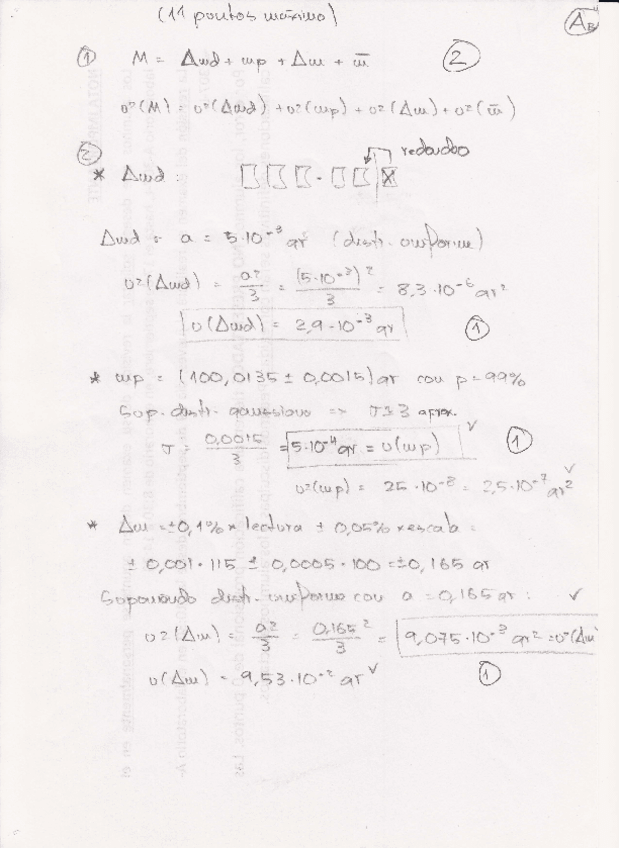 (11 puntos máximo)
AB
① M = Δmd + mp + Δm + m̄ ②
υ²(M) = υ²(Δmd) + υ²(mp) + υ²(Δm) + υ²(m̄)
② redondeo
* Δmd :
Δmd = a = 5·10⁻³ gr (distr. uniforme)
υ²(Δmd) = a²/3 = (5·10⁻³)²/3 = 8,3·10⁻⁶ gr²
υ(Δmd) = 2,9·10⁻³ gr ①
* mp = (100,0135 ± 0,0015) gr con p = 99%
Sup. distr. gaussiana => T=3 aprox.
σ = 0,0015/3 = 5·10⁻⁴ gr = υ(mp) ✓ ①
υ²(mp) = 25·10⁻⁸ = 2,5·10⁻⁷ gr² ✓
* Δm = ±0,1% × lectura ± 0,05% × escala =
± 0,001·115 ± 0,0005·100 = ±0,165 gr
Suponiendo distr. uniforme con a = 0,165 gr : ✓
υ²(Δm) = a²/3 = 0,165²/3 = 9,075·10⁻³ gr² = υ²(Δm
υ(Δm) = 9,53·10⁻² gr ✓ ①